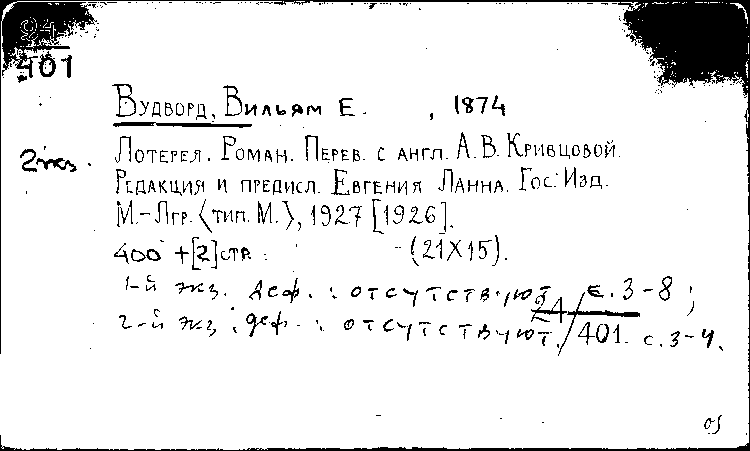 24
401
Вудворд, Вильям Е. , 1874
2 экз. Лотерея. Роман. Перев. с англ. А.В. Кривцовой.
Редакция и предисл. Евгения Ланна. Гос. Изд.
М.-Лгр. <тип. М.>, 1927 [1926].
400 + [2] стр. (21X15).
1-й экз. деф.: отсутствуют с. 3-8;
2-й экз. деф.: отсутствуют с. 3-4.
24/401.